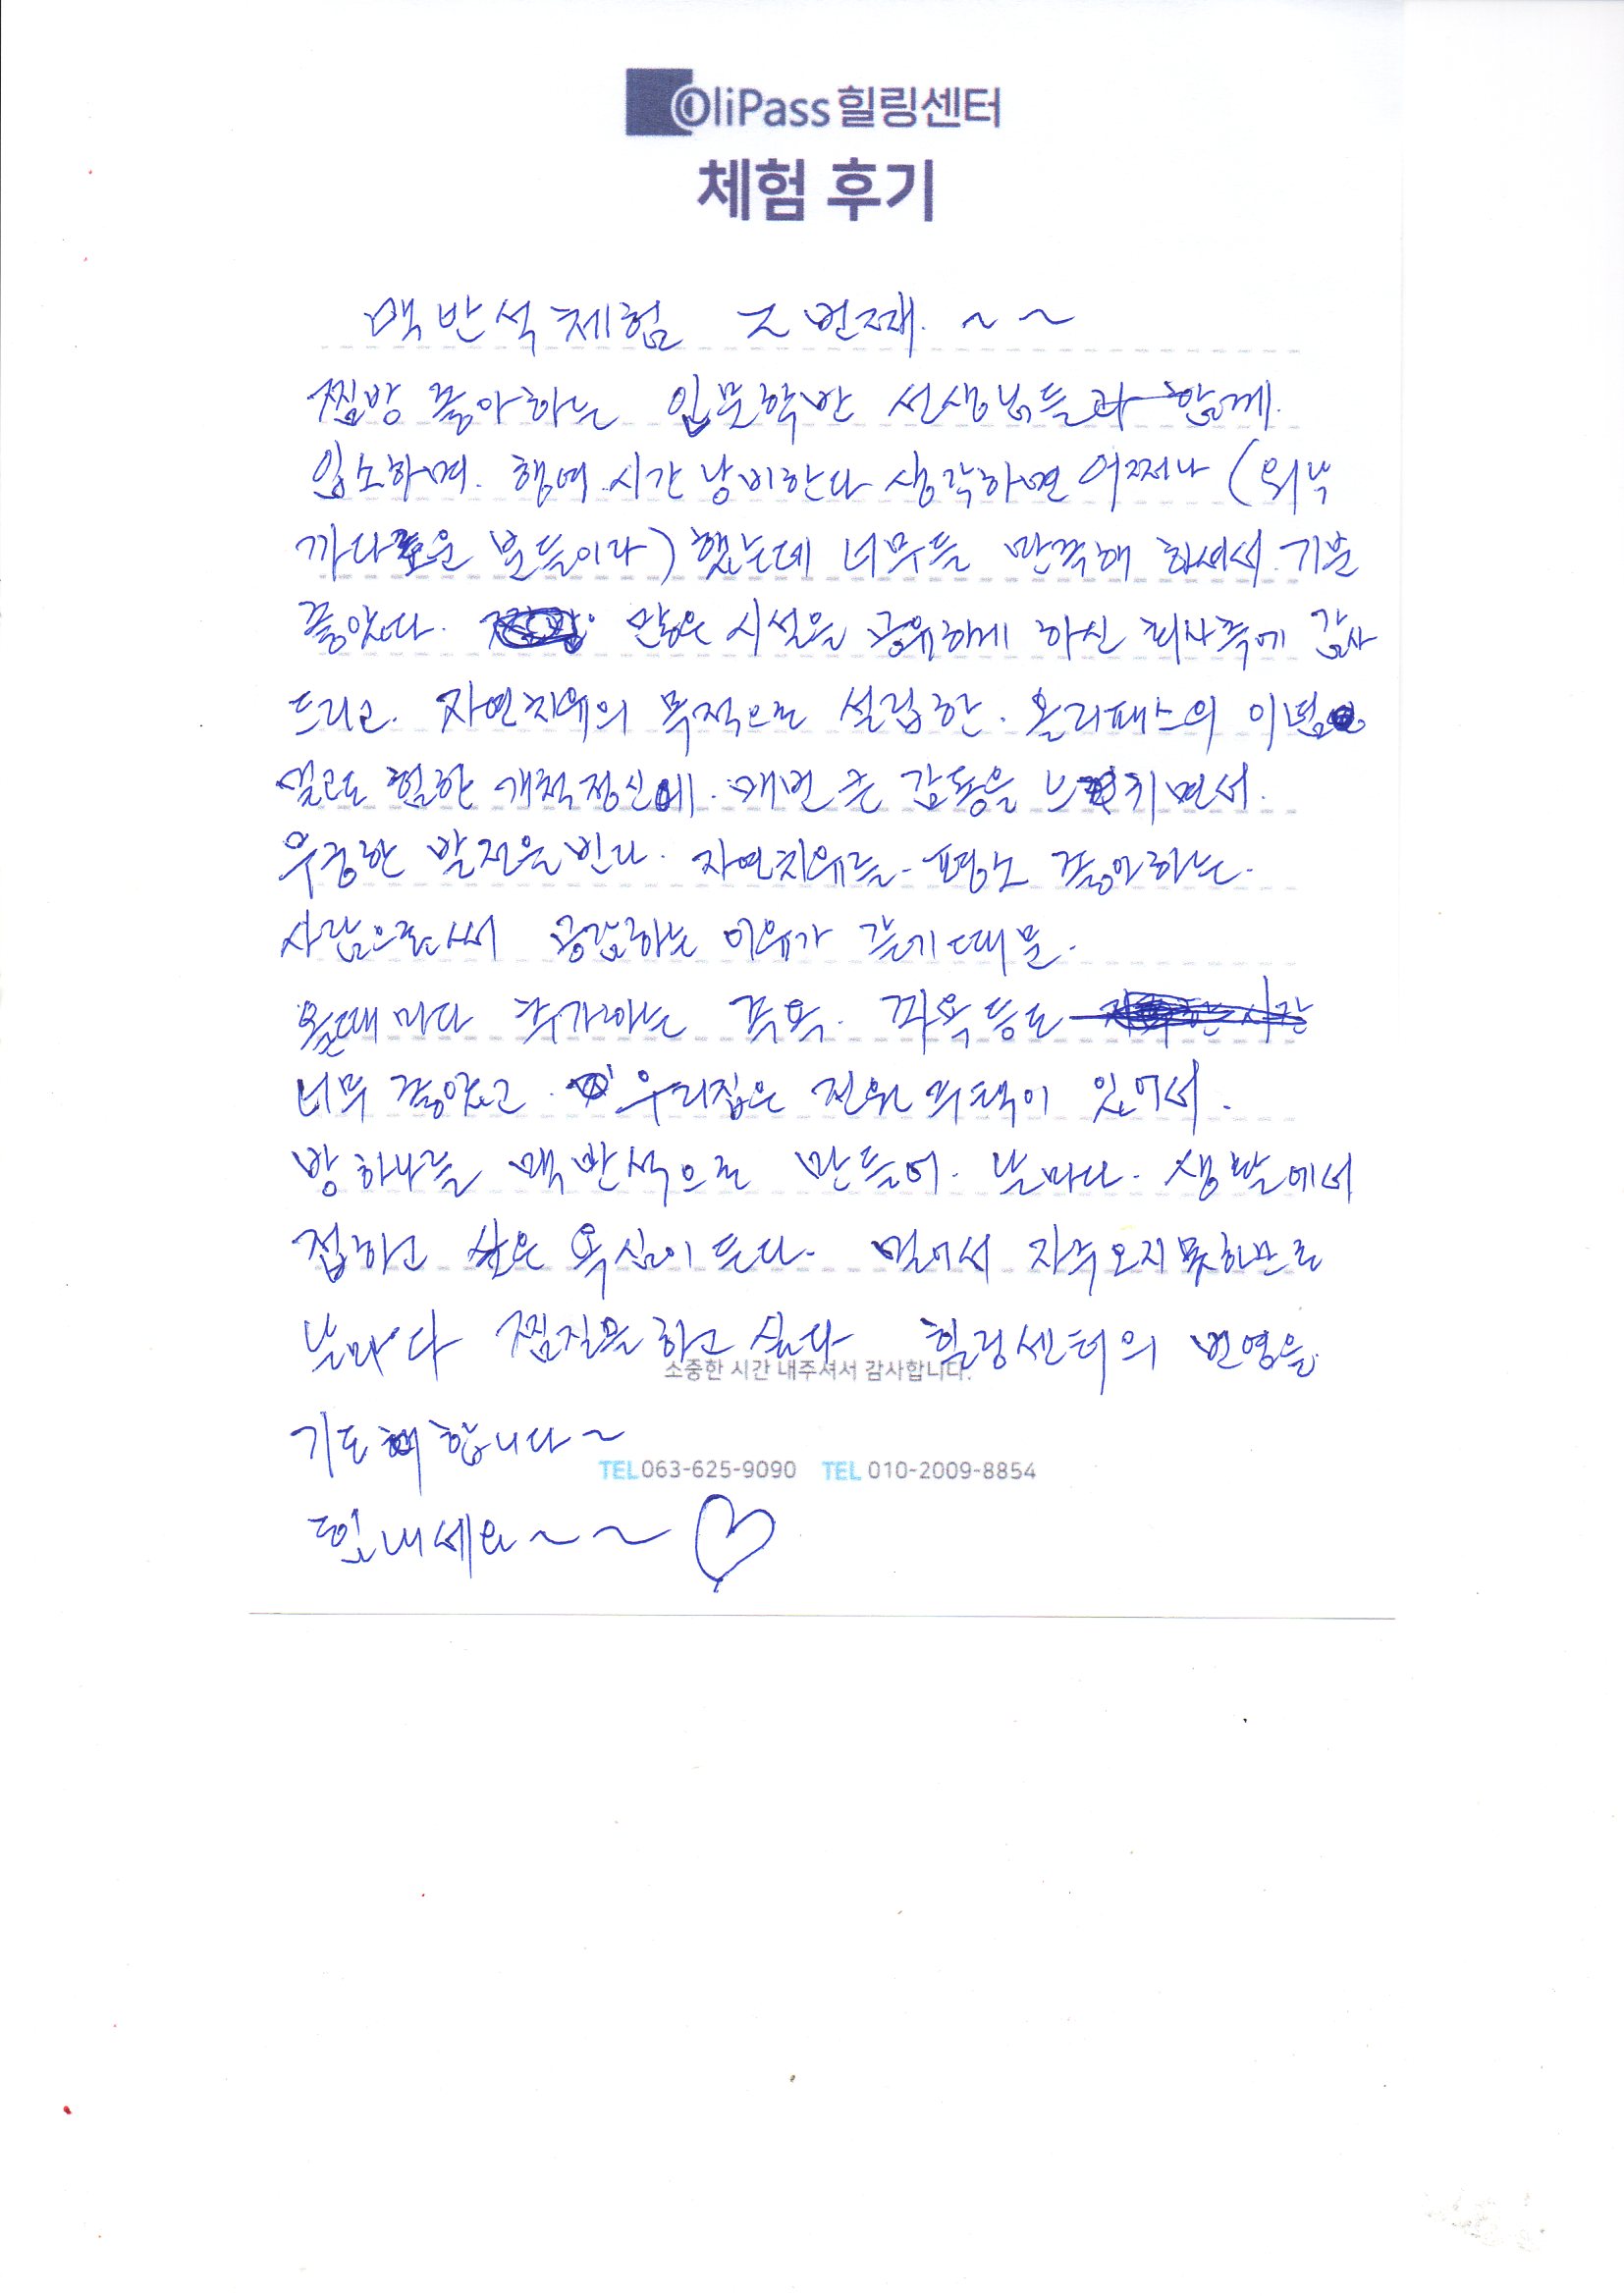 OliPass 힐링센터
체험 후기
맥반석 체험 2번째. ~ ~
찜방 좋아하는 인문학반 선생님들과 함께.
입소하며. 행여 시간 낭비한다 생각하면 어쩌나 (워낙
까다로운 분들이라) 했는데 너무들 만족해 하셔서. 기분
좋았다. 많은 시설을 공유하게 하신 회사측에 감사
드리고. 자연치유의 목적으로 설립한. 올리패스의 이념
멀고도 험한 개척정신에. 매번 큰 감동을 느끼면서.
무궁한 발전을 빈다. 자연치유를. 평소 좋아하는.
사람으로써 공감하는 이유가 같기 때문.
올때마다 추가하는 족욕. 좌욕 등도
너무 좋았고. 우리집은 전원 주택이 있어서.
방 하나를 맥반석으로 만들어. 날마다. 생활에서
접하고 싶은 욕심이 든다. 멀어서 자주 오지 못하므로
날마다 찜질을 하고 싶다 힐링센터의 번영을
소중한 시간 내주셔서 감사합니다.
기도 합니다~
TEL 063-625-9090 TEL 010-2009-8854
힘내세요~~ ♡